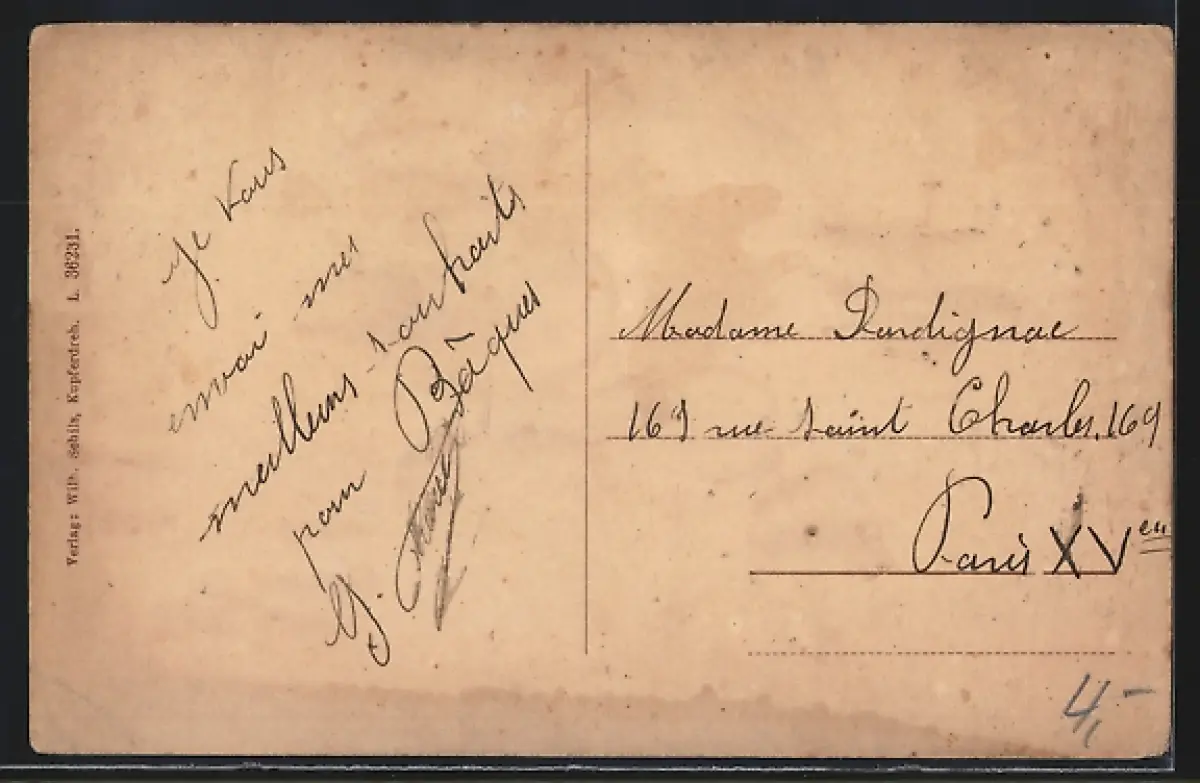 Je vous
envoi mes
meilleurs souhaits
pour Pâques
G.
Madame Dardignac
169 rue Saint Charles. 169
Paris XV em
4,-
Verlag: Wilh. Schils, Kupferdreh. L. 36231.